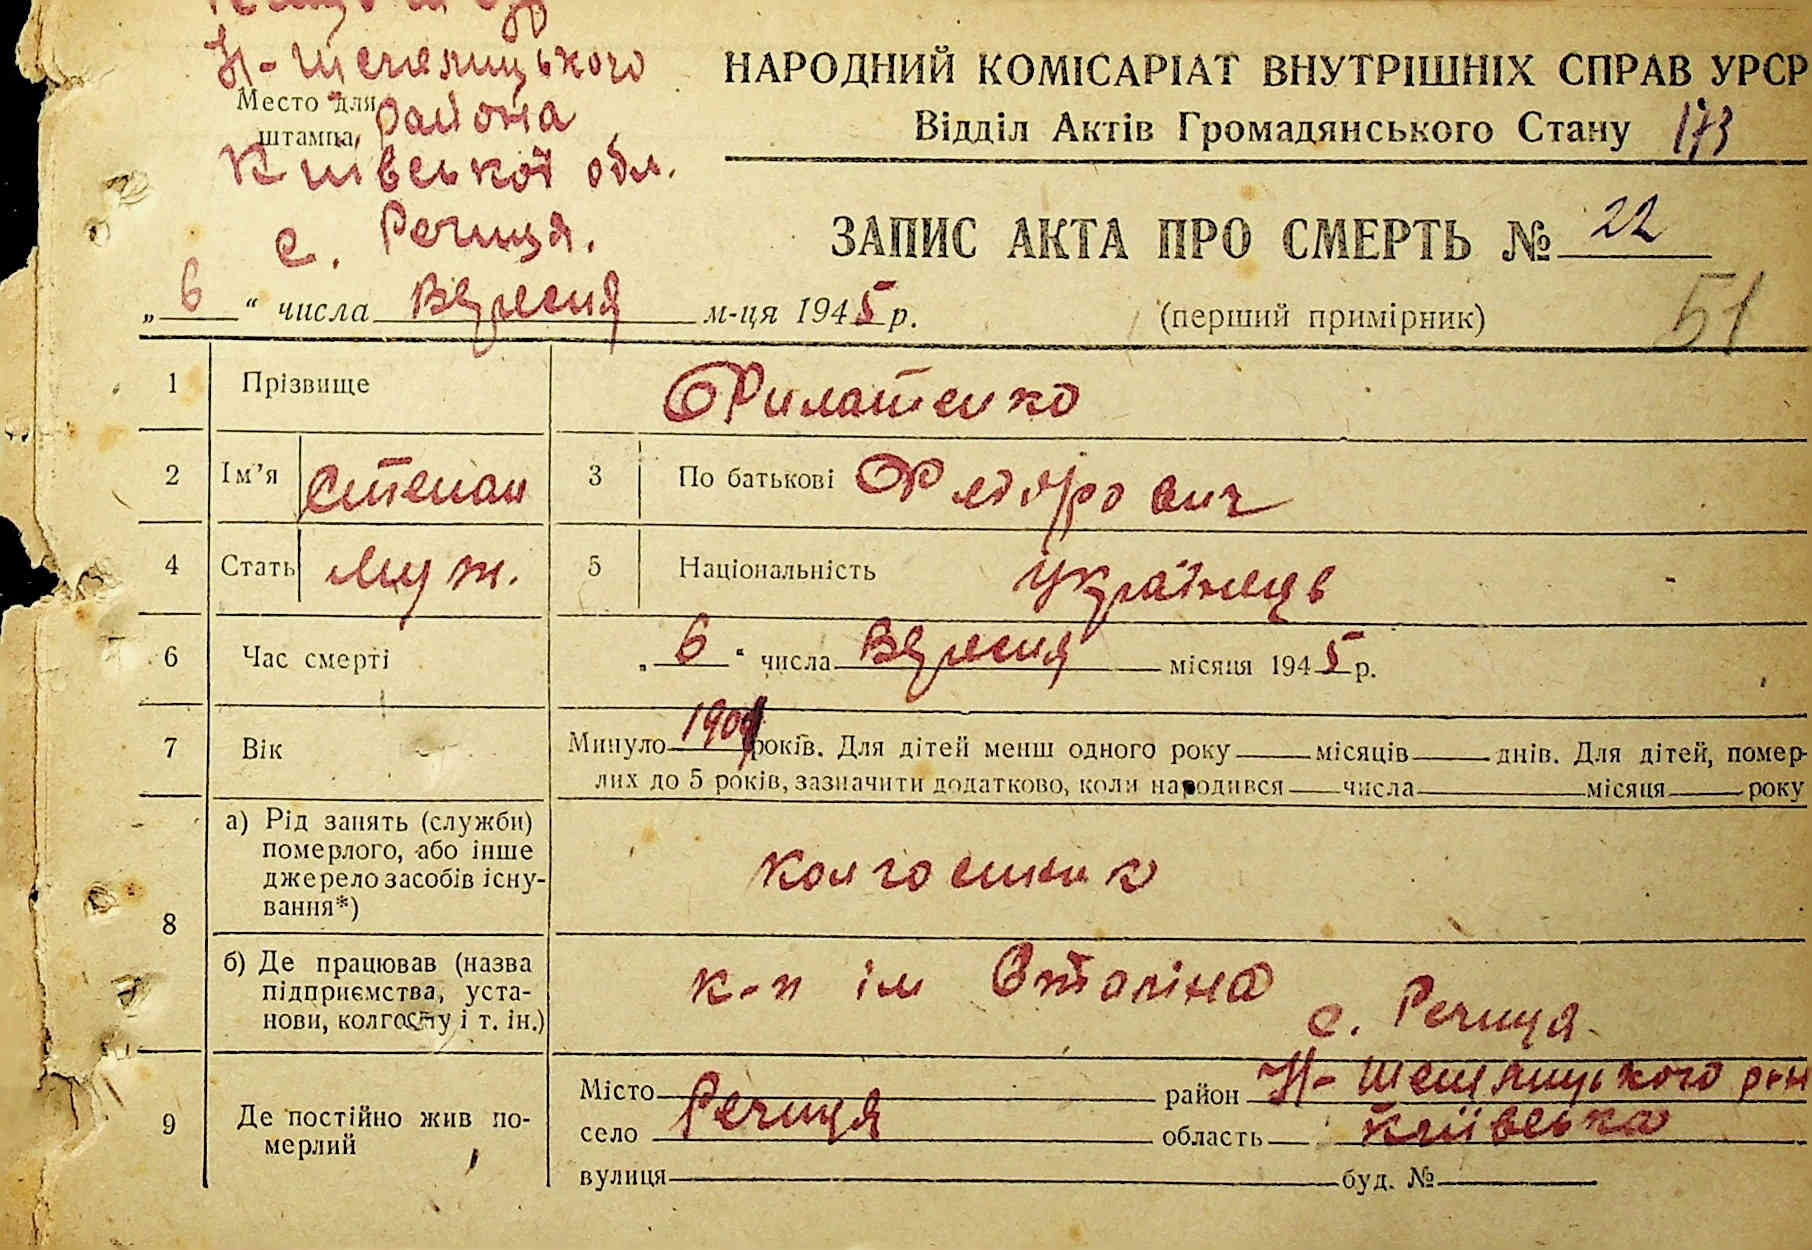 НАРОДНИЙ КОМІСАРІАТ ВНУТРІШНІХ СПРАВ УРСР
Відділ Актів Громадянського Стану 173
Н-Шепелицького
Место для
штампа
района
Київської обл.
с. Речиця.
ЗАПИС АКТА ПРО СМЕРТЬ № 22
„6“ числа Вересня м-ця 1945 р.
(перший примірник)
51
1 Прізвище Филатенко
2 Ім’я Степан 3 По батькові Федорович
4 Стать муж. 5 Національність українець
6 Час смерті „6“ числа Вересня місяця 1945 р.
7 Вік Минуло років. Для дітей менш одного року місяців днів. Для дітей, помер-
лих до 5 років, зазначити додатково, коли народився числа місяця року
8
а) Рід занять (служби)
померлого, або інше
джерело засобів існу-
вання*)
колгоспник
б) Де працював (назва
підприємства, уста-
нови, колгоспу і т. ін.)
к-п ім Сталіна
с. Речиця.
9 Де постійно жив по-
мерлий
Місто район Н-Шепелицького р-н
село Речиця область Київська
вулиця буд. №